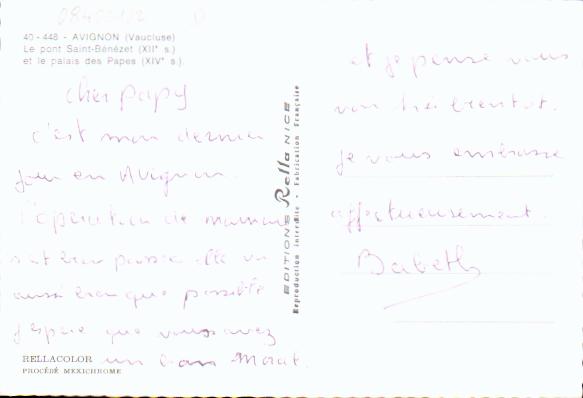 40 - 448 - AVIGNON (Vaucluse)
Le pont Saint-Bénézet (XIIe s.)
et le palais des Papes (XIVe s.)
cher papy
c'est mon dernier
jour en Avignon.
l'opération de maman
s'est bien passée. Elle va
aussi bien que possible
j'espère que vous avez
un bon moral.
RELLACOLOR
PROCÉDÉ MEXICHROME
EDITIONS Rella NICE
Reproduction interdite - Fabrication Française
et je pense vous
voir très bientôt.
je vous embrasse
affectueusement.
Babeth